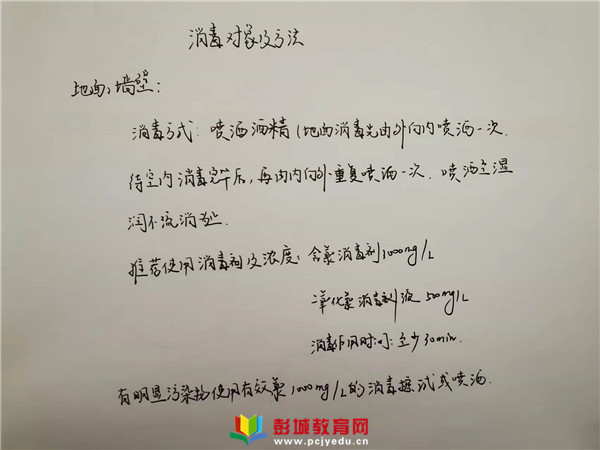 消毒对象及方法
地面、墙壁:
消毒方式: 喷洒酒精(地面消毒先由外向内喷洒一次.
待室内消毒完毕后,再由内向外重复喷洒一次. 喷洒至湿
润不流淌为止.
推荐使用消毒剂及浓度: 含氯消毒剂1000mg/L
二氧化氯消毒剂液 500mg/L
消毒作用时间: 至少30min.
有明显污染物使用有效氯1000mg/L的消毒擦试或喷洒.
彭城教育网
www.pcjyedu.cn